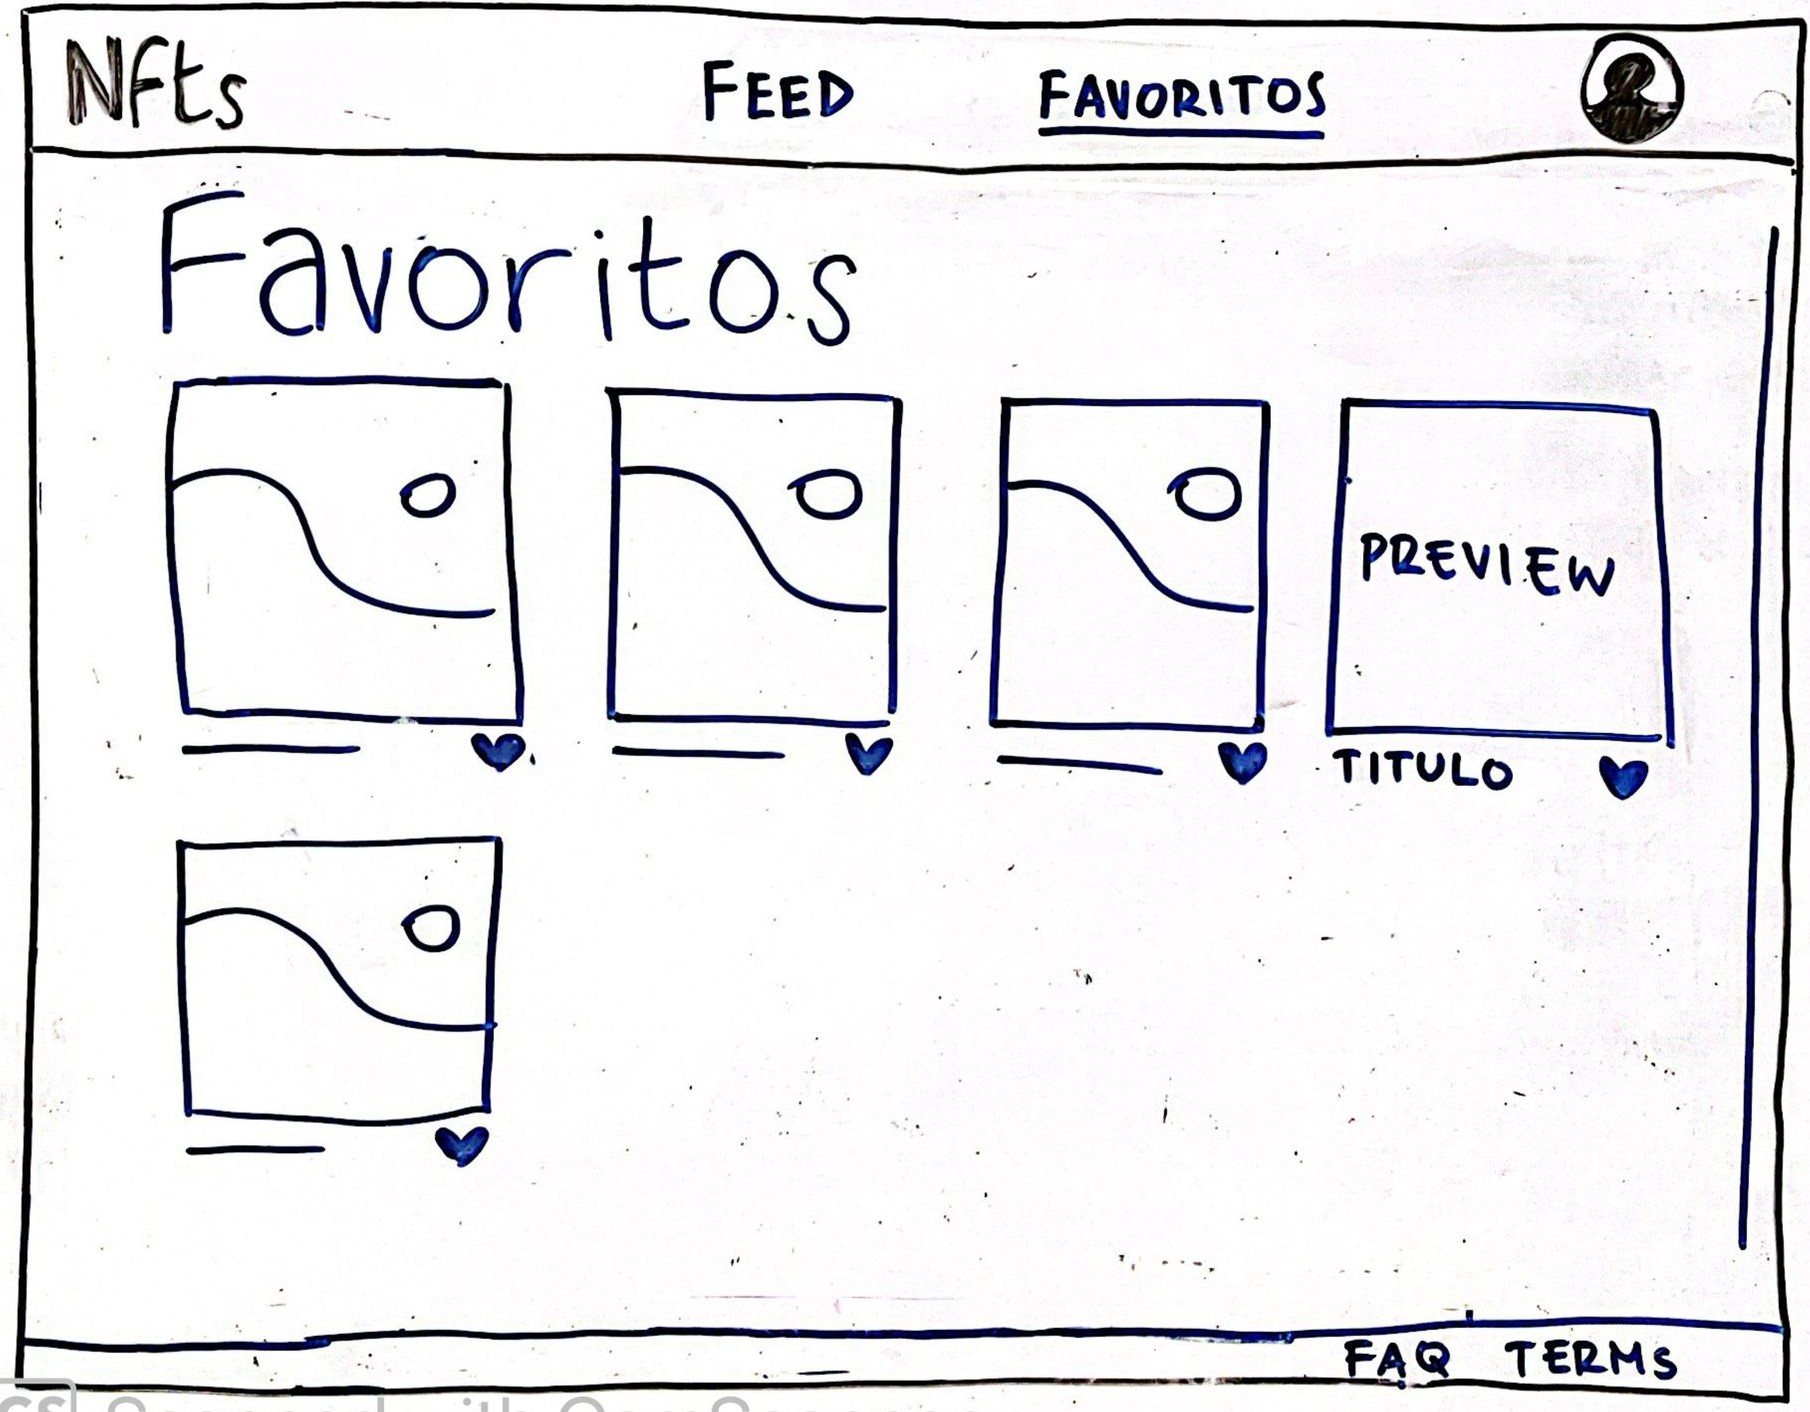 Nfts FEED FAVORITOS
Favoritos
PREVIEW
TITULO
FAQ TERMS
CS Scanned with CamScanner